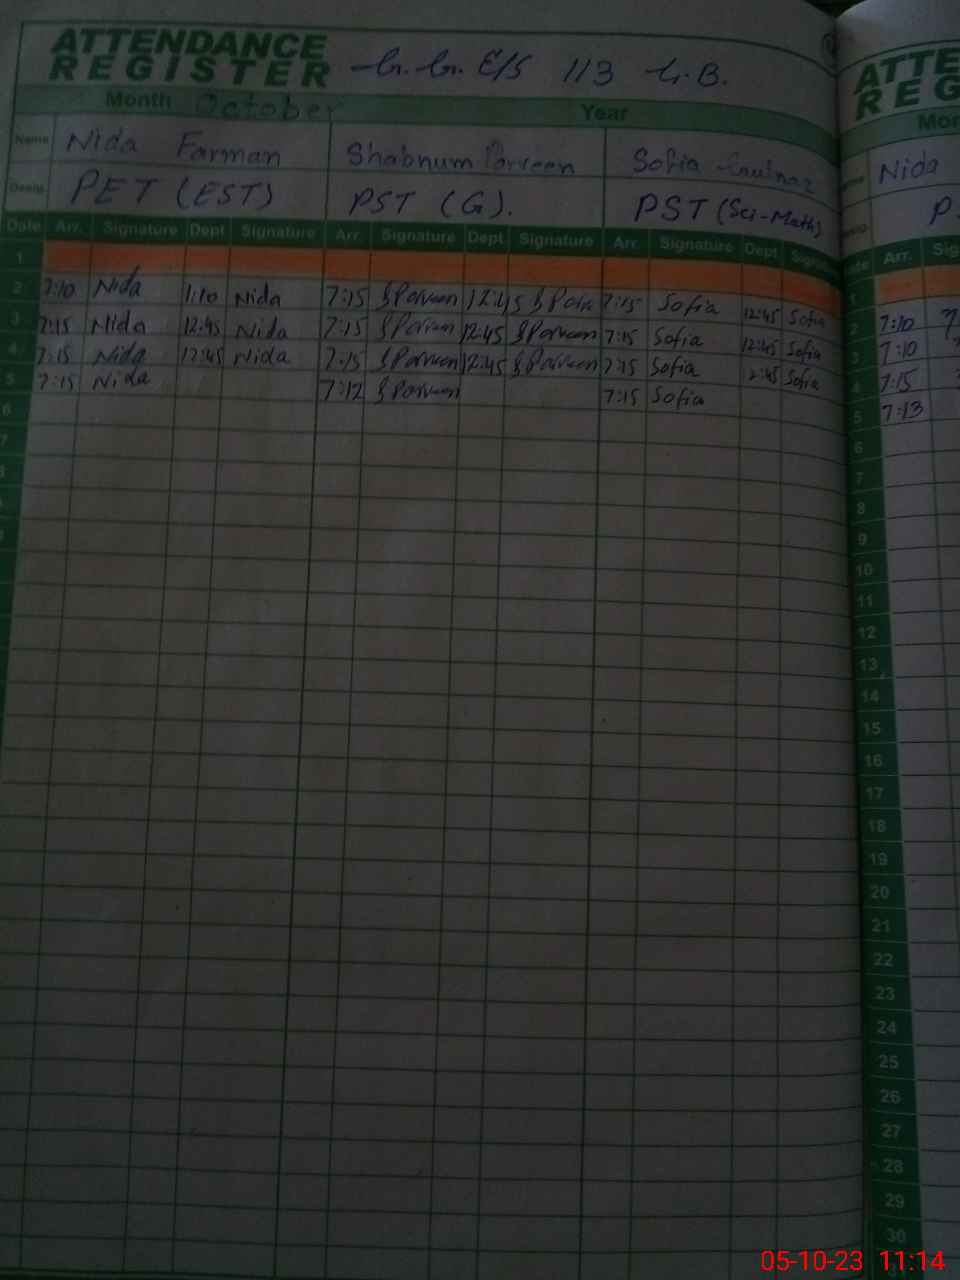 ATTENDANCE
REGISTER G. G. E/S 113 G.B.
Month October Year
Name Nida Farman Shabnum Parveen Sofia
Desig. PET (EST) PST (G). PST (Sci-Math)
Date Arr. Signature Dept Signature Arr. Signature Dept Signature Arr. Signature Dept Signature
1
2 7:10 Nida 1:10 Nida 7:15 S Parveen 12:45 7:15 Sofia 12:45 Sofia
3 7:15 Nida 12:45 Nida 7:15 S Parveen 12:45 S Parveen 7:15 Sofia 12:45 Sofia
4 7:15 Nida 12:45 Nida 7:15 S Parveen 12:45 S Parveen 7:15 Sofia 12:45 Sofia
5 7:15 Nida 7:12 S Parveen 7:15 Sofia
6
7
ATTE
REG
Mon
Nida
P.
Arr. Sig
1
2 7:10
3 7:10
4 7:15
5 7:13
6
7
8
9
10
11
12
13
14
15
16
17
18
19
20
21
22
23
24
25
26
27
28
29
30
05-10-23 11:14